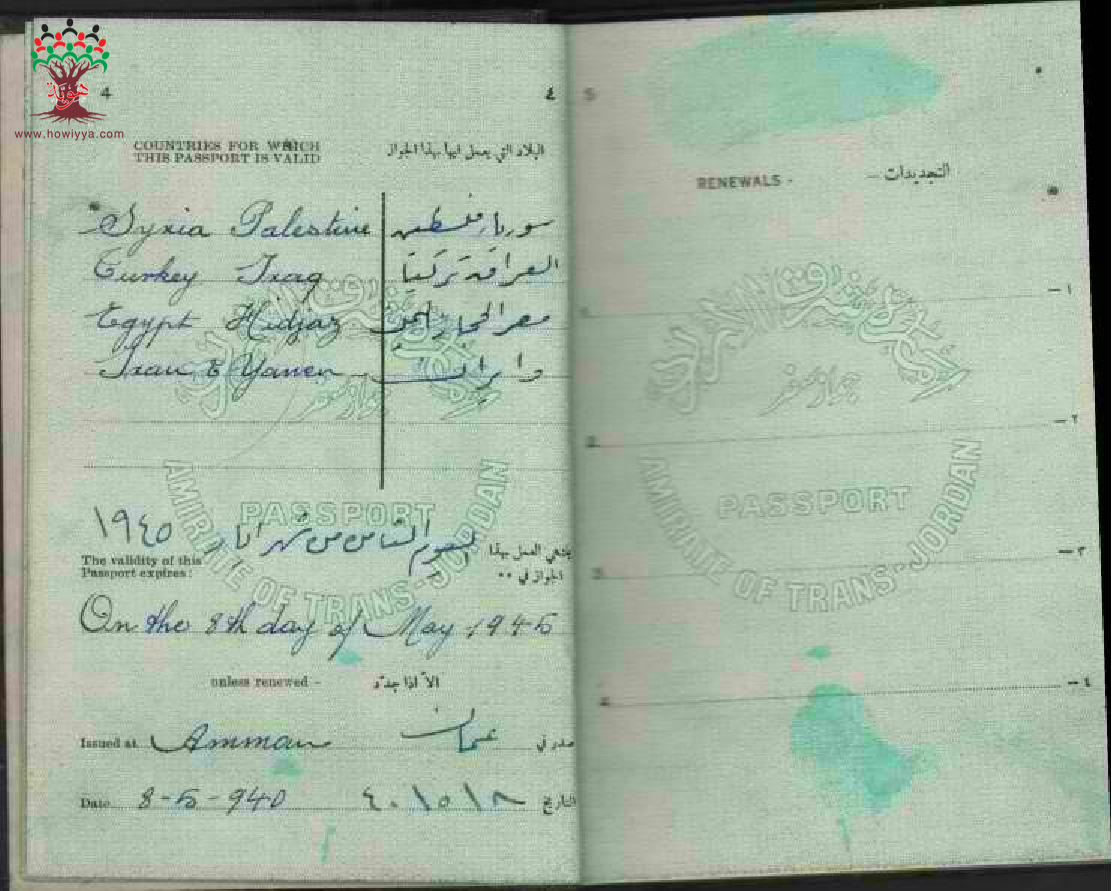 هوية
www.howiyya.com
4 ٤
COUNTRIES FOR WHICH
THIS PASSPORT IS VALID
البلاد التي يعمل فيها بهذا الجواز
Syria Palestine سوريا فلسطين
Turkey Iraq العراق تركيا
Egypt Hidjaz مصر الحجاز اليمن
Iran & Yamen وايران
PASSPORT
AMIRATE OF TRANS-JORDAN
ينتهي العمل بهذا
الجواز في
اليوم الثامن من شهر ايار ١٩٤٥
The validity of this
Passport expires:
On the 8th day of May 1945
unless renewed - الا اذا جدد
Issued at Amman عمان صدر في
Date 8-5-940 التاريخ ٨/٥/٤٠
5
RENEWALS - التجديدات -
١ -
٢ -
٣ -
٤ -
إمارة شرق الأردن
جواز سفر
PASSPORT
AMIRATE OF TRANS-JORDAN